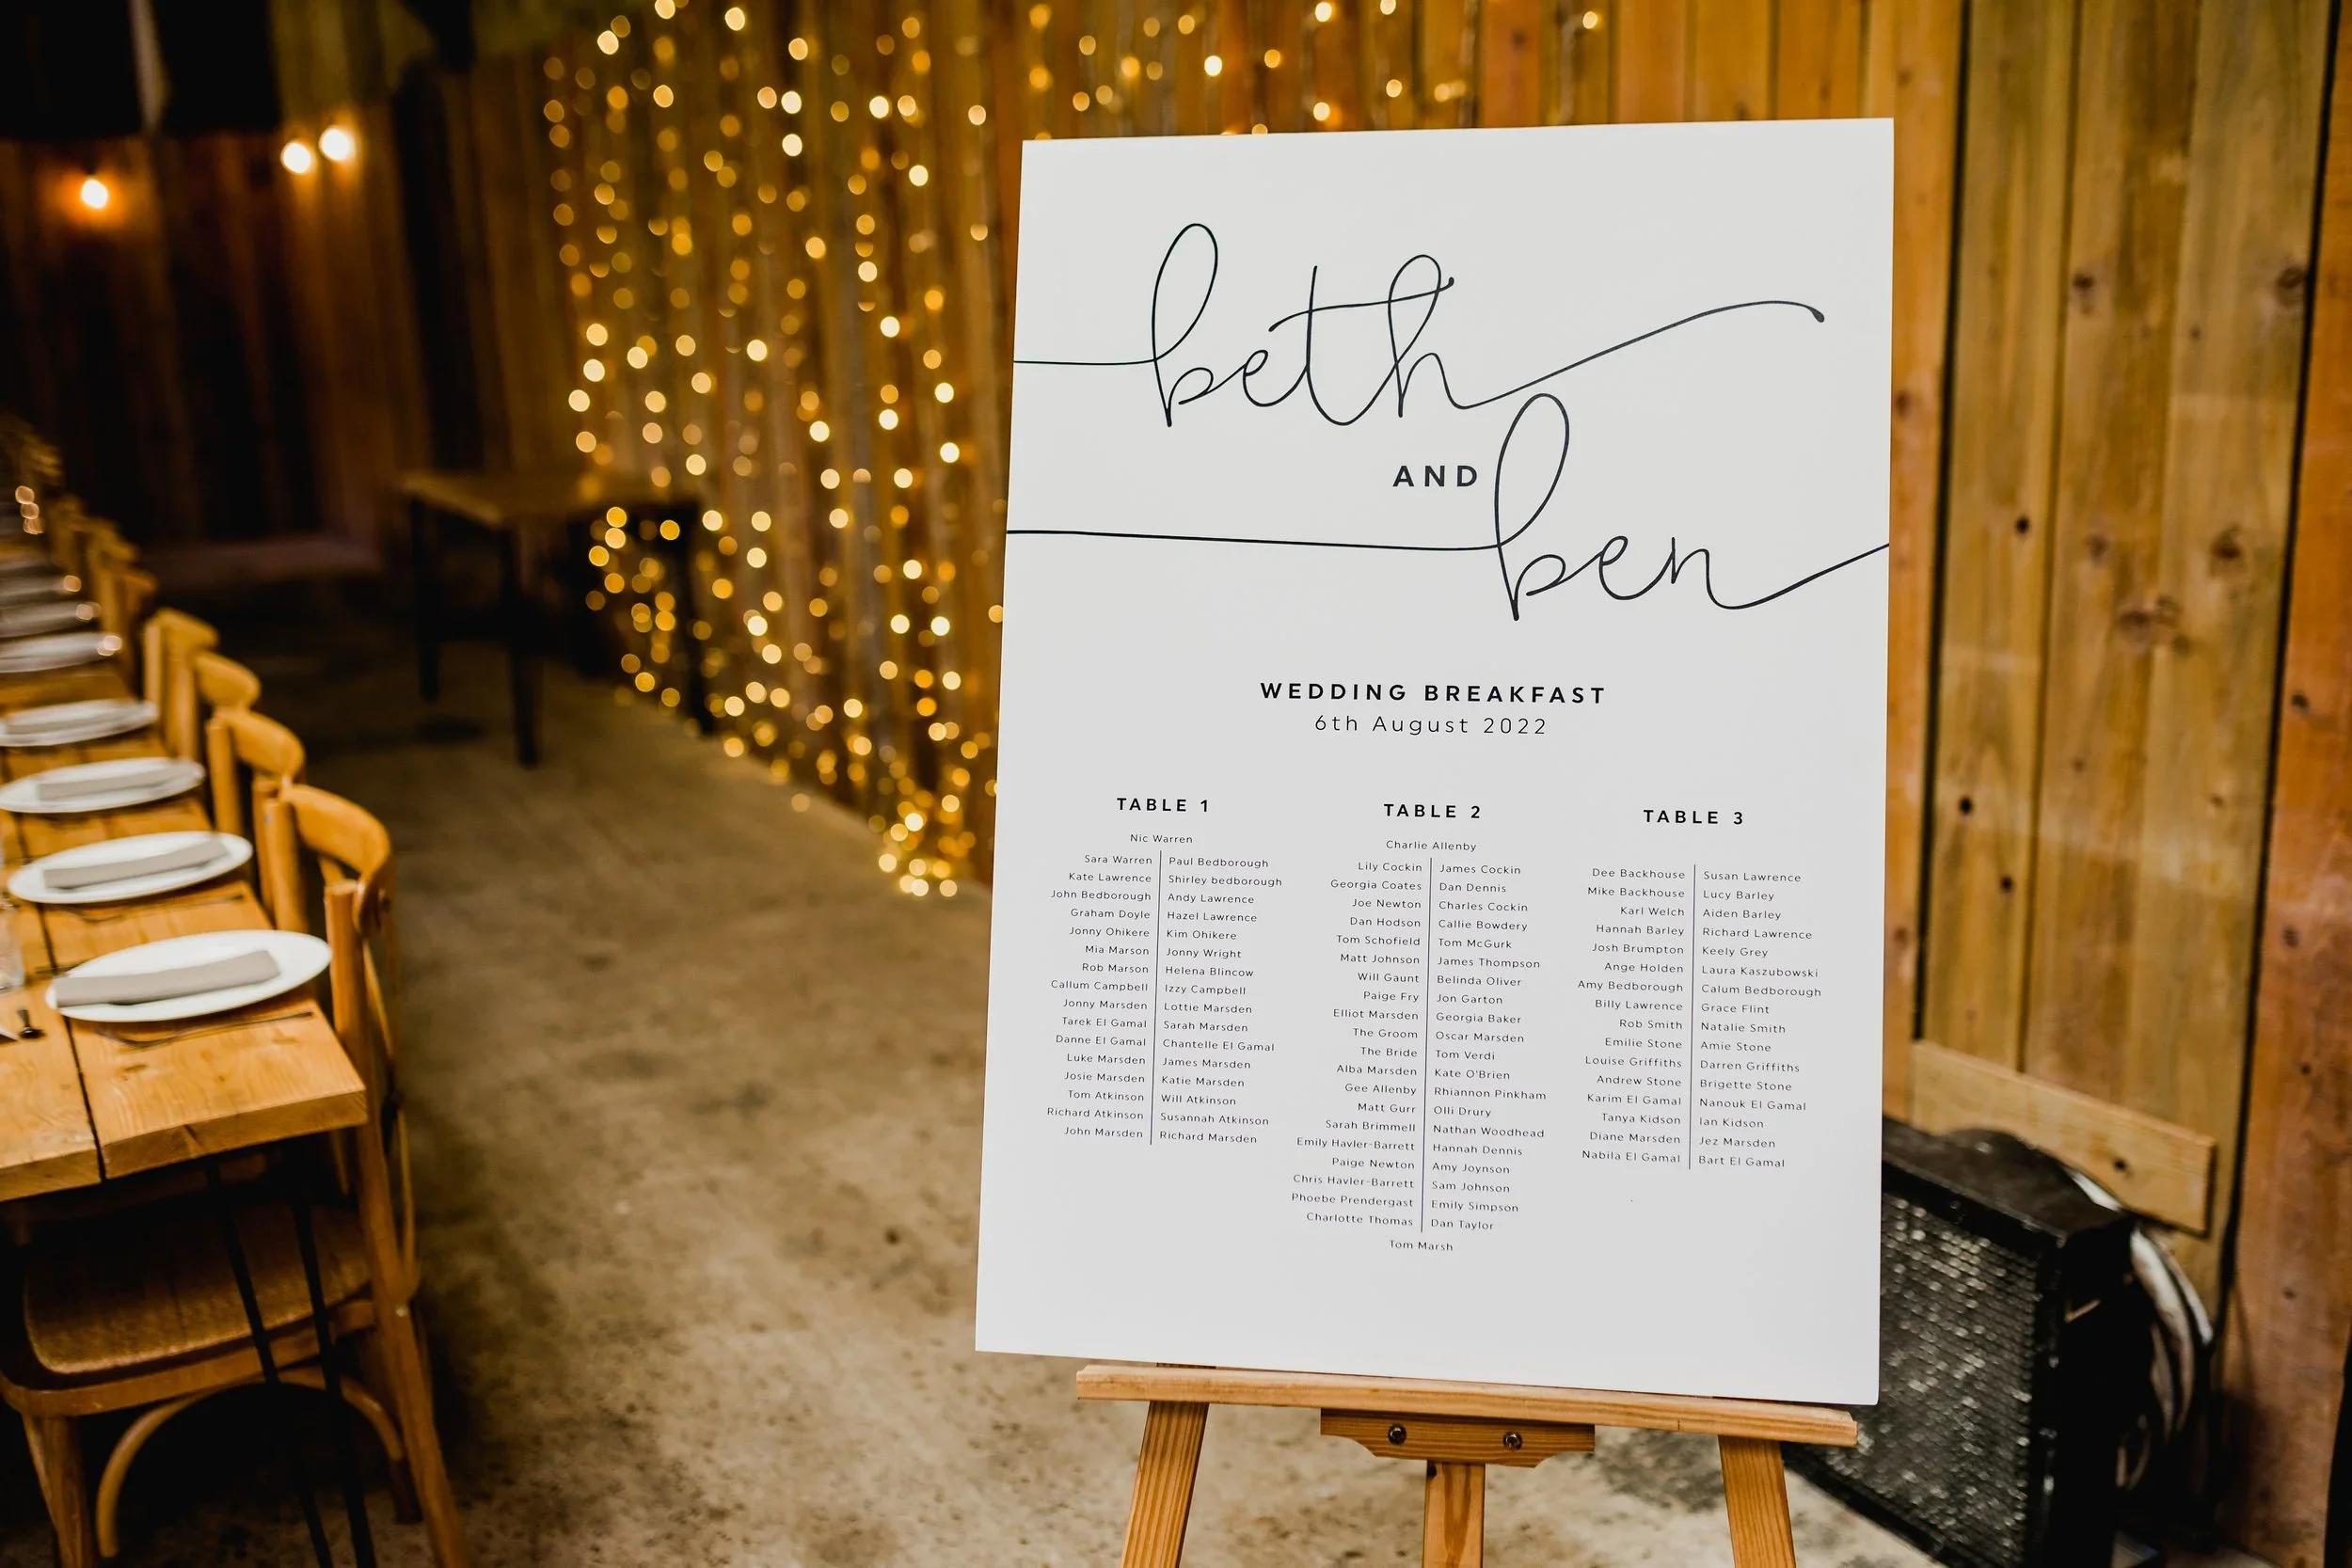 beth
AND
ben
WEDDING BREAKFAST
6th August 2022
TABLE 1
Nic Warren
Sara Warren Paul Bedborough
Kate Lawrence Shirley bedborough
John Bedborough Andy Lawrence
Graham Doyle Hazel Lawrence
Jonny Ohikere Kim Ohikere
Mia Marson Jonny Wright
Rob Marson Helena Blincow
Callum Campbell Izzy Campbell
Jonny Marsden Lottie Marsden
Tarek El Gamal Sarah Marsden
Danne El Gamal Chantelle El Gamal
Luke Marsden James Marsden
Josie Marsden Katie Marsden
Tom Atkinson Will Atkinson
Richard Atkinson Susannah Atkinson
John Marsden Richard Marsden
TABLE 2
Charlie Allenby
Lily Cockin James Cockin
Georgia Coates Dan Dennis
Joe Newton Charles Cockin
Dan Hodson Callie Bowdery
Tom Schofield Tom McGurk
Matt Johnson James Thompson
Will Gaunt Belinda Oliver
Paige Fry Jon Garton
Elliot Marsden Georgia Baker
The Groom Oscar Marsden
The Bride Tom Verdi
Alba Marsden Kate O'Brien
Gee Allenby Rhiannon Pinkham
Matt Gurr Olli Drury
Sarah Brimmell Nathan Woodhead
Emily Havler-Barrett Hannah Dennis
Paige Newton Amy Joynson
Chris Havler-Barrett Sam Johnson
Phoebe Prendergast Emily Simpson
Charlotte Thomas Dan Taylor
Tom Marsh
TABLE 3
Dee Backhouse Susan Lawrence
Mike Backhouse Lucy Barley
Karl Welch Aiden Barley
Hannah Barley Richard Lawrence
Josh Brumpton Keely Grey
Ange Holden Laura Kaszubowski
Amy Bedborough Calum Bedborough
Billy Lawrence Grace Flint
Rob Smith Natalie Smith
Emilie Stone Amie Stone
Louise Griffiths Darren Griffiths
Andrew Stone Brigette Stone
Karim El Gamal Nanouk El Gamal
Tanya Kidson Ian Kidson
Diane Marsden Jez Marsden
Nabila El Gamal Bart El Gamal